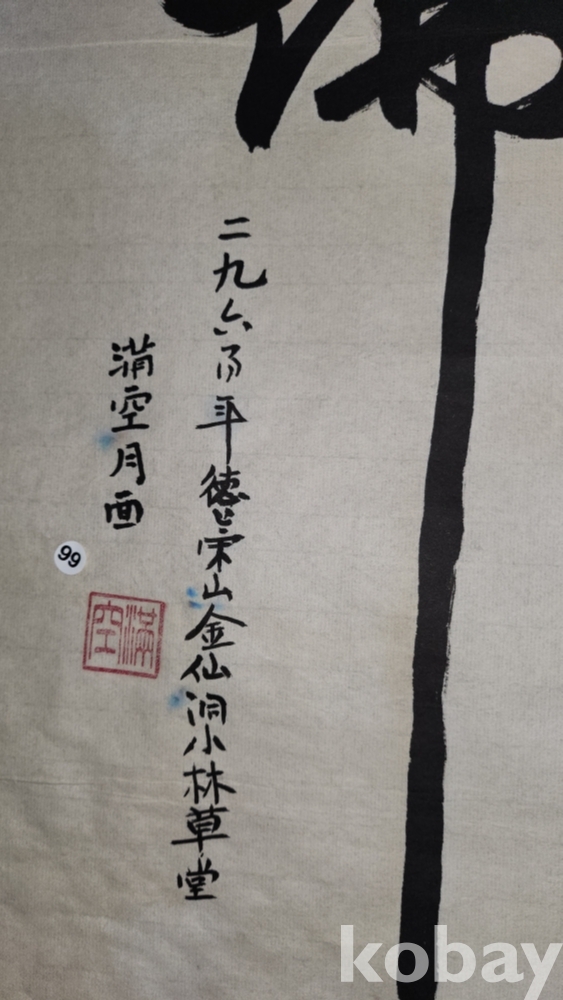 佛
二九六年德崇山金仙洞小林草堂
滿空月面
99
滿空
kobay